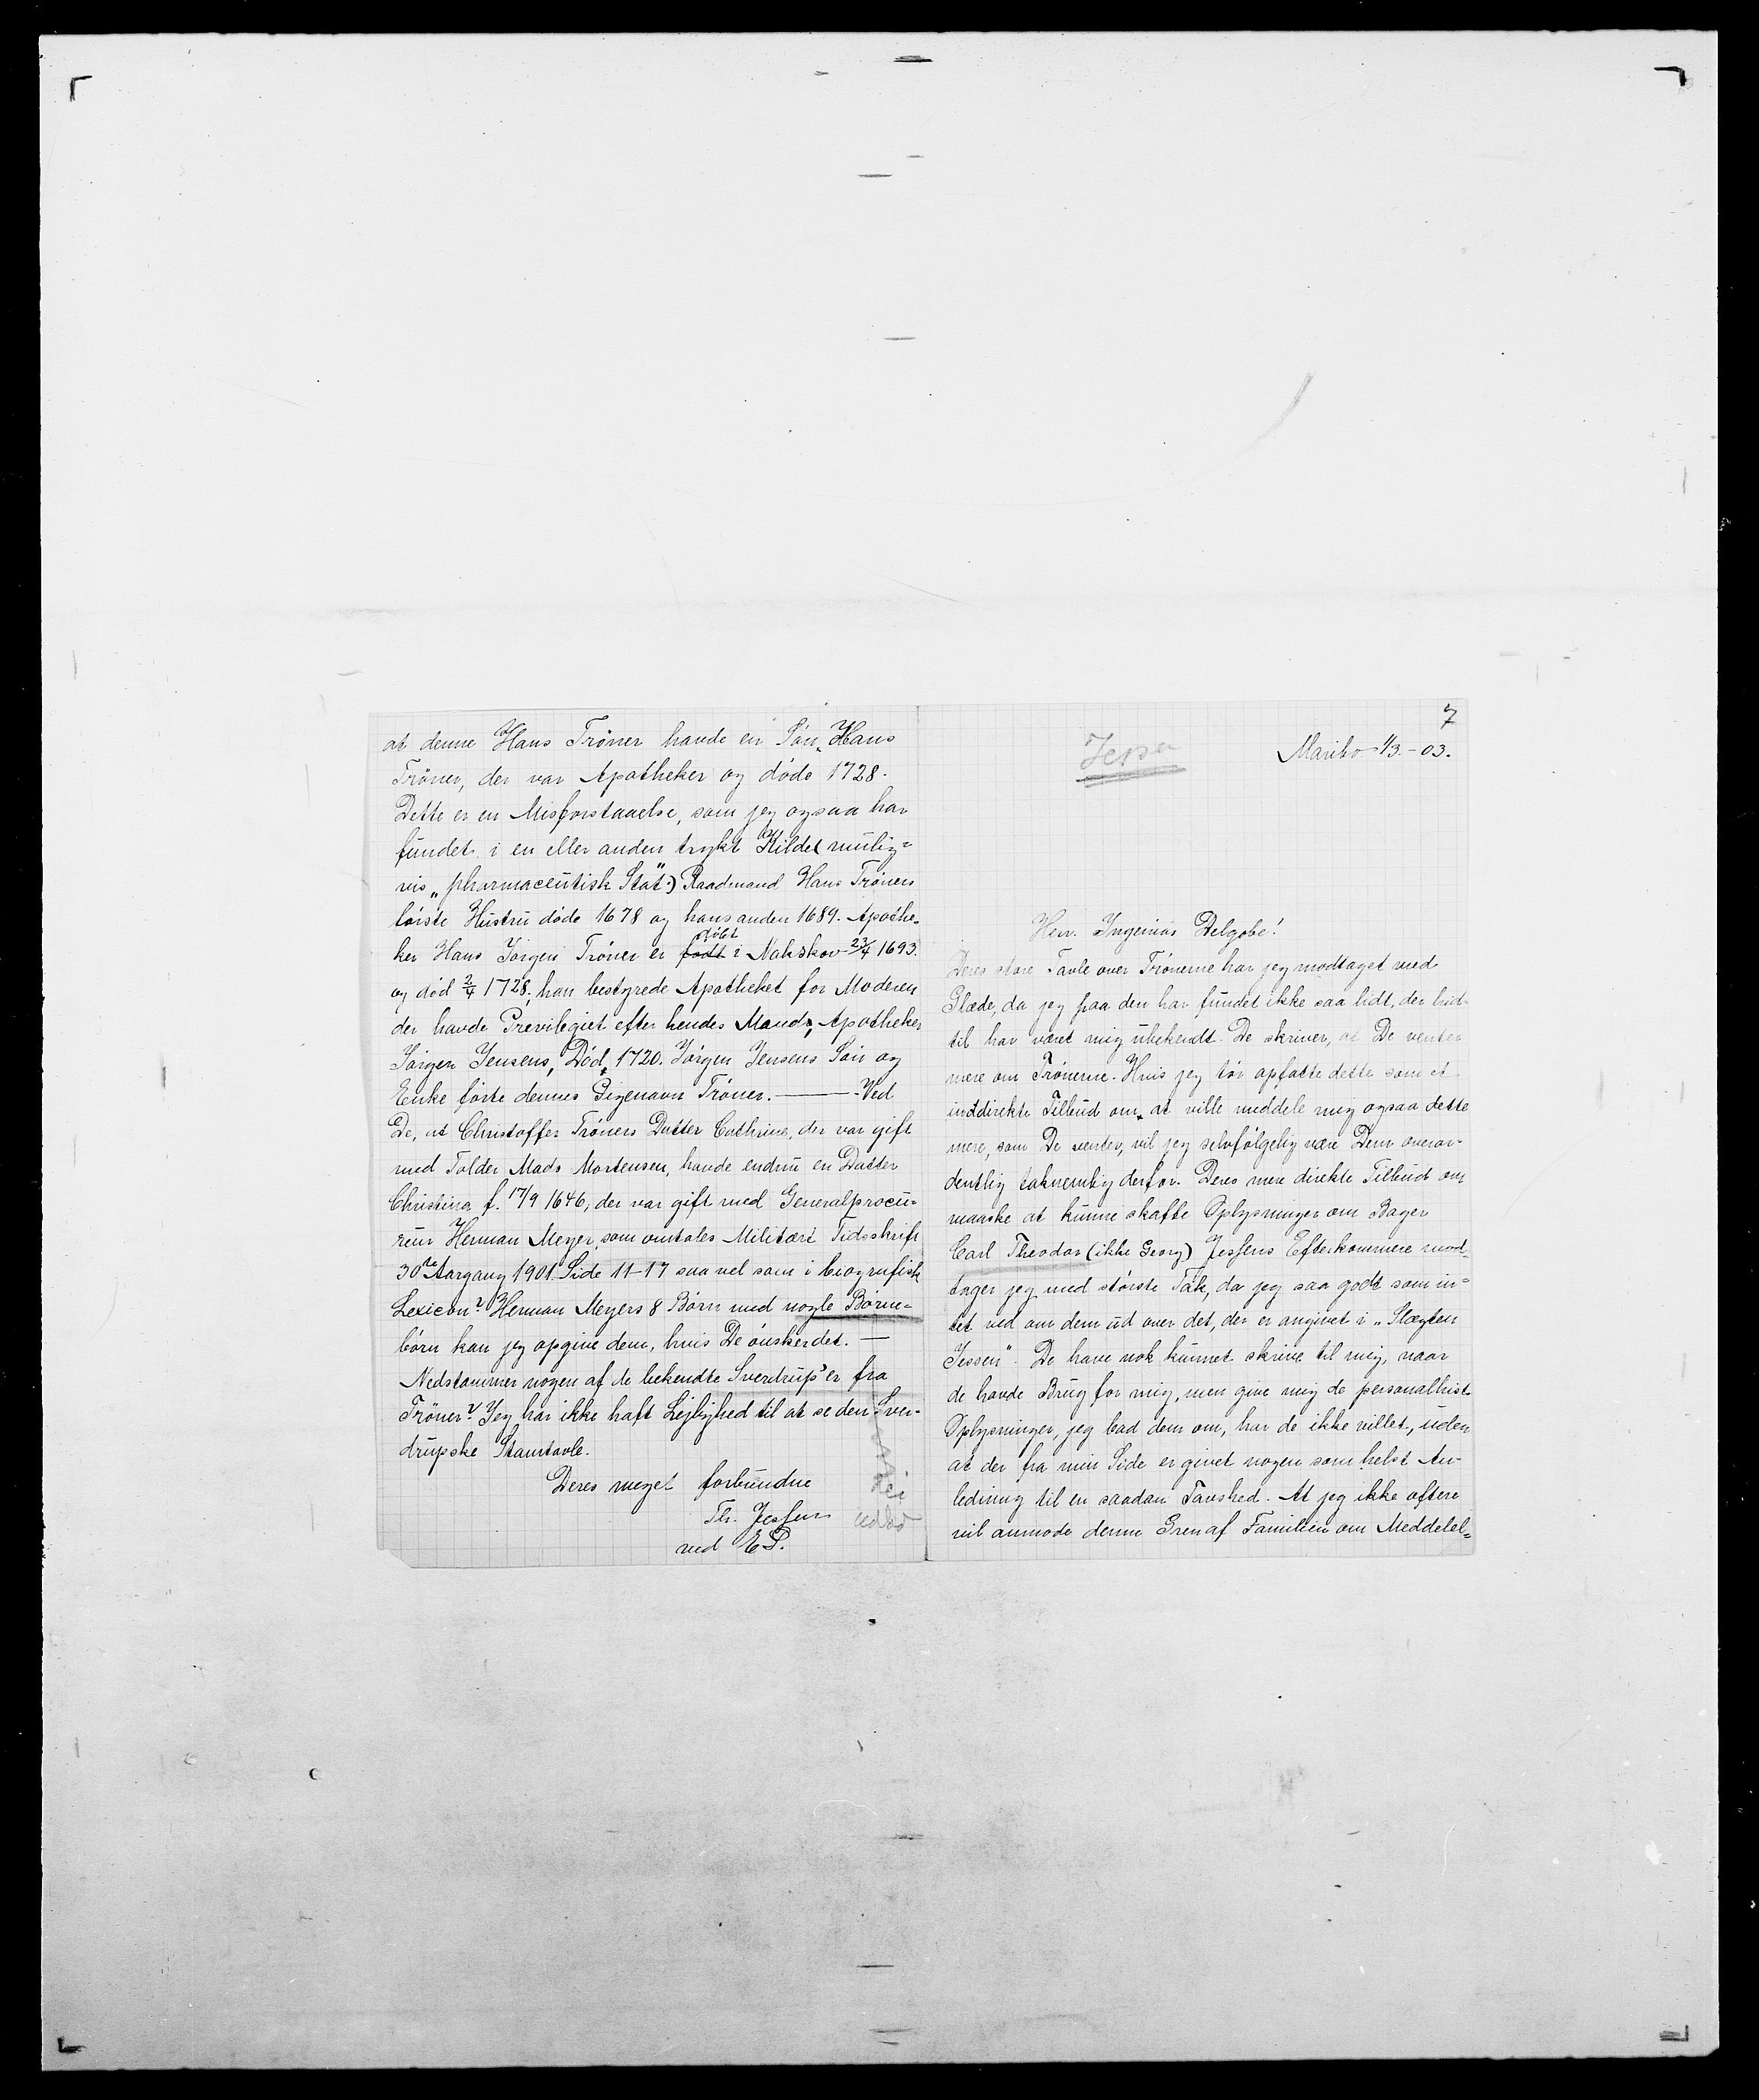 at denne Hans Tröner havde en Sön, Hans
Tröner, der var Apotheker og døde 1728.
Dette er en Misforstaaelse, som jeg ogsaa har
fundet i en eller anden trykt Kilde (mulig=
vis „pharmaceutisk Stat".) Raadmand Hans Tröners
første Hustru døde 1678 og hans anden 1689. Apothe-
döbt
ker Hans Jörgen Tröner er født i Nakskov 23/4 1693.
og død 2/4 1728, han bestyrede Apotheket for Moderen
der havde Previlegiet efter hendes Mands, Apotheker
Jörgen Jensens, Död, 1720. Jörgen Jensens Sön og
Enke førte dennes Pigenavn Tröner. — Ved
De, at Christoffer Tröners Datter Cathrine, der var gift
med Tolder Mads Mortensen, havde endnu en Datter
Christina f. 17/9 1646, der var gift med Generalprocu-
reur Herman Meyer, som omtales Militært Tidsskrift
30te Aargang 1901 Side 11-17 saavel som i biografisk
Lexicon? Herman Meyers 8 Börn med nogle Börne=
börn kan jeg opgive dem, hvis De önsker det. —
Nedstammer nogen af de bekendte Sverdrup'er fra
Tröner? Jeg har ikke haft Lejlighed til at se den Sver-
drupske Stamtavle.
Deres meget forbundne
Th. Jessen
ved E P.
7
Jessen
Maribo 1/3 - 03.
Herr. Ingeniör Delgobe!
Deres store Tavle over Trönerne har jeg modtaget med
Glæde, da jeg paa den har fundet ikke saa lidt, der hid-
til har været mig ubekendt. De skriver, at De venter
mere om Trönerne. Hvis jeg tör opfatte dette som et
inddirekte Tilbud om, at ville meddele mig ogsaa dette
mere, som De venter, vil jeg selvfølgelig være Dem overor-
dentlig taknemlig derfor. Deres mere direkte Tilbud om
maaske at kunne skaffe Oplysninger om Bager
Carl Theodor (ikke Georg) Jessens Efterkommere mod-
tager jeg med störste Tak, da jeg saa godt som in=
tet ved om dem ud over det, der er angivet i „Slægten
Jessen". De have nok kunnet skrive til mig, naar
de havde Brug for mig, men give mig de personalhist.
Oplysninger, jeg bad dem om, har de ikke villet, uden
at der fra min Side er givet nogen som helst An-
ledning til en saadan Tavshed. At jeg ikke oftere
vil anmode denne Gren af Familien om Meddelel=